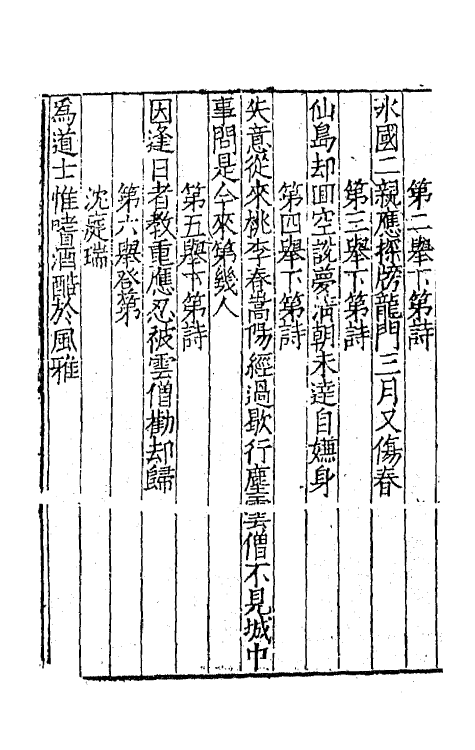 第二舉下第詩
水國二親應探榜龍門三月又傷春
第三舉下第詩
仙島却回空說夢清朝未達自嫌身
第四舉下第詩
失意從來桃李春嵩陽經過歇行塵雲僧不見城中
事問是今來第幾人
第五舉下第詩
因逢日者教重應忍被雲僧勸却歸
第六舉登第
沈庭瑞
為道士惟嗜酒酷於風雅